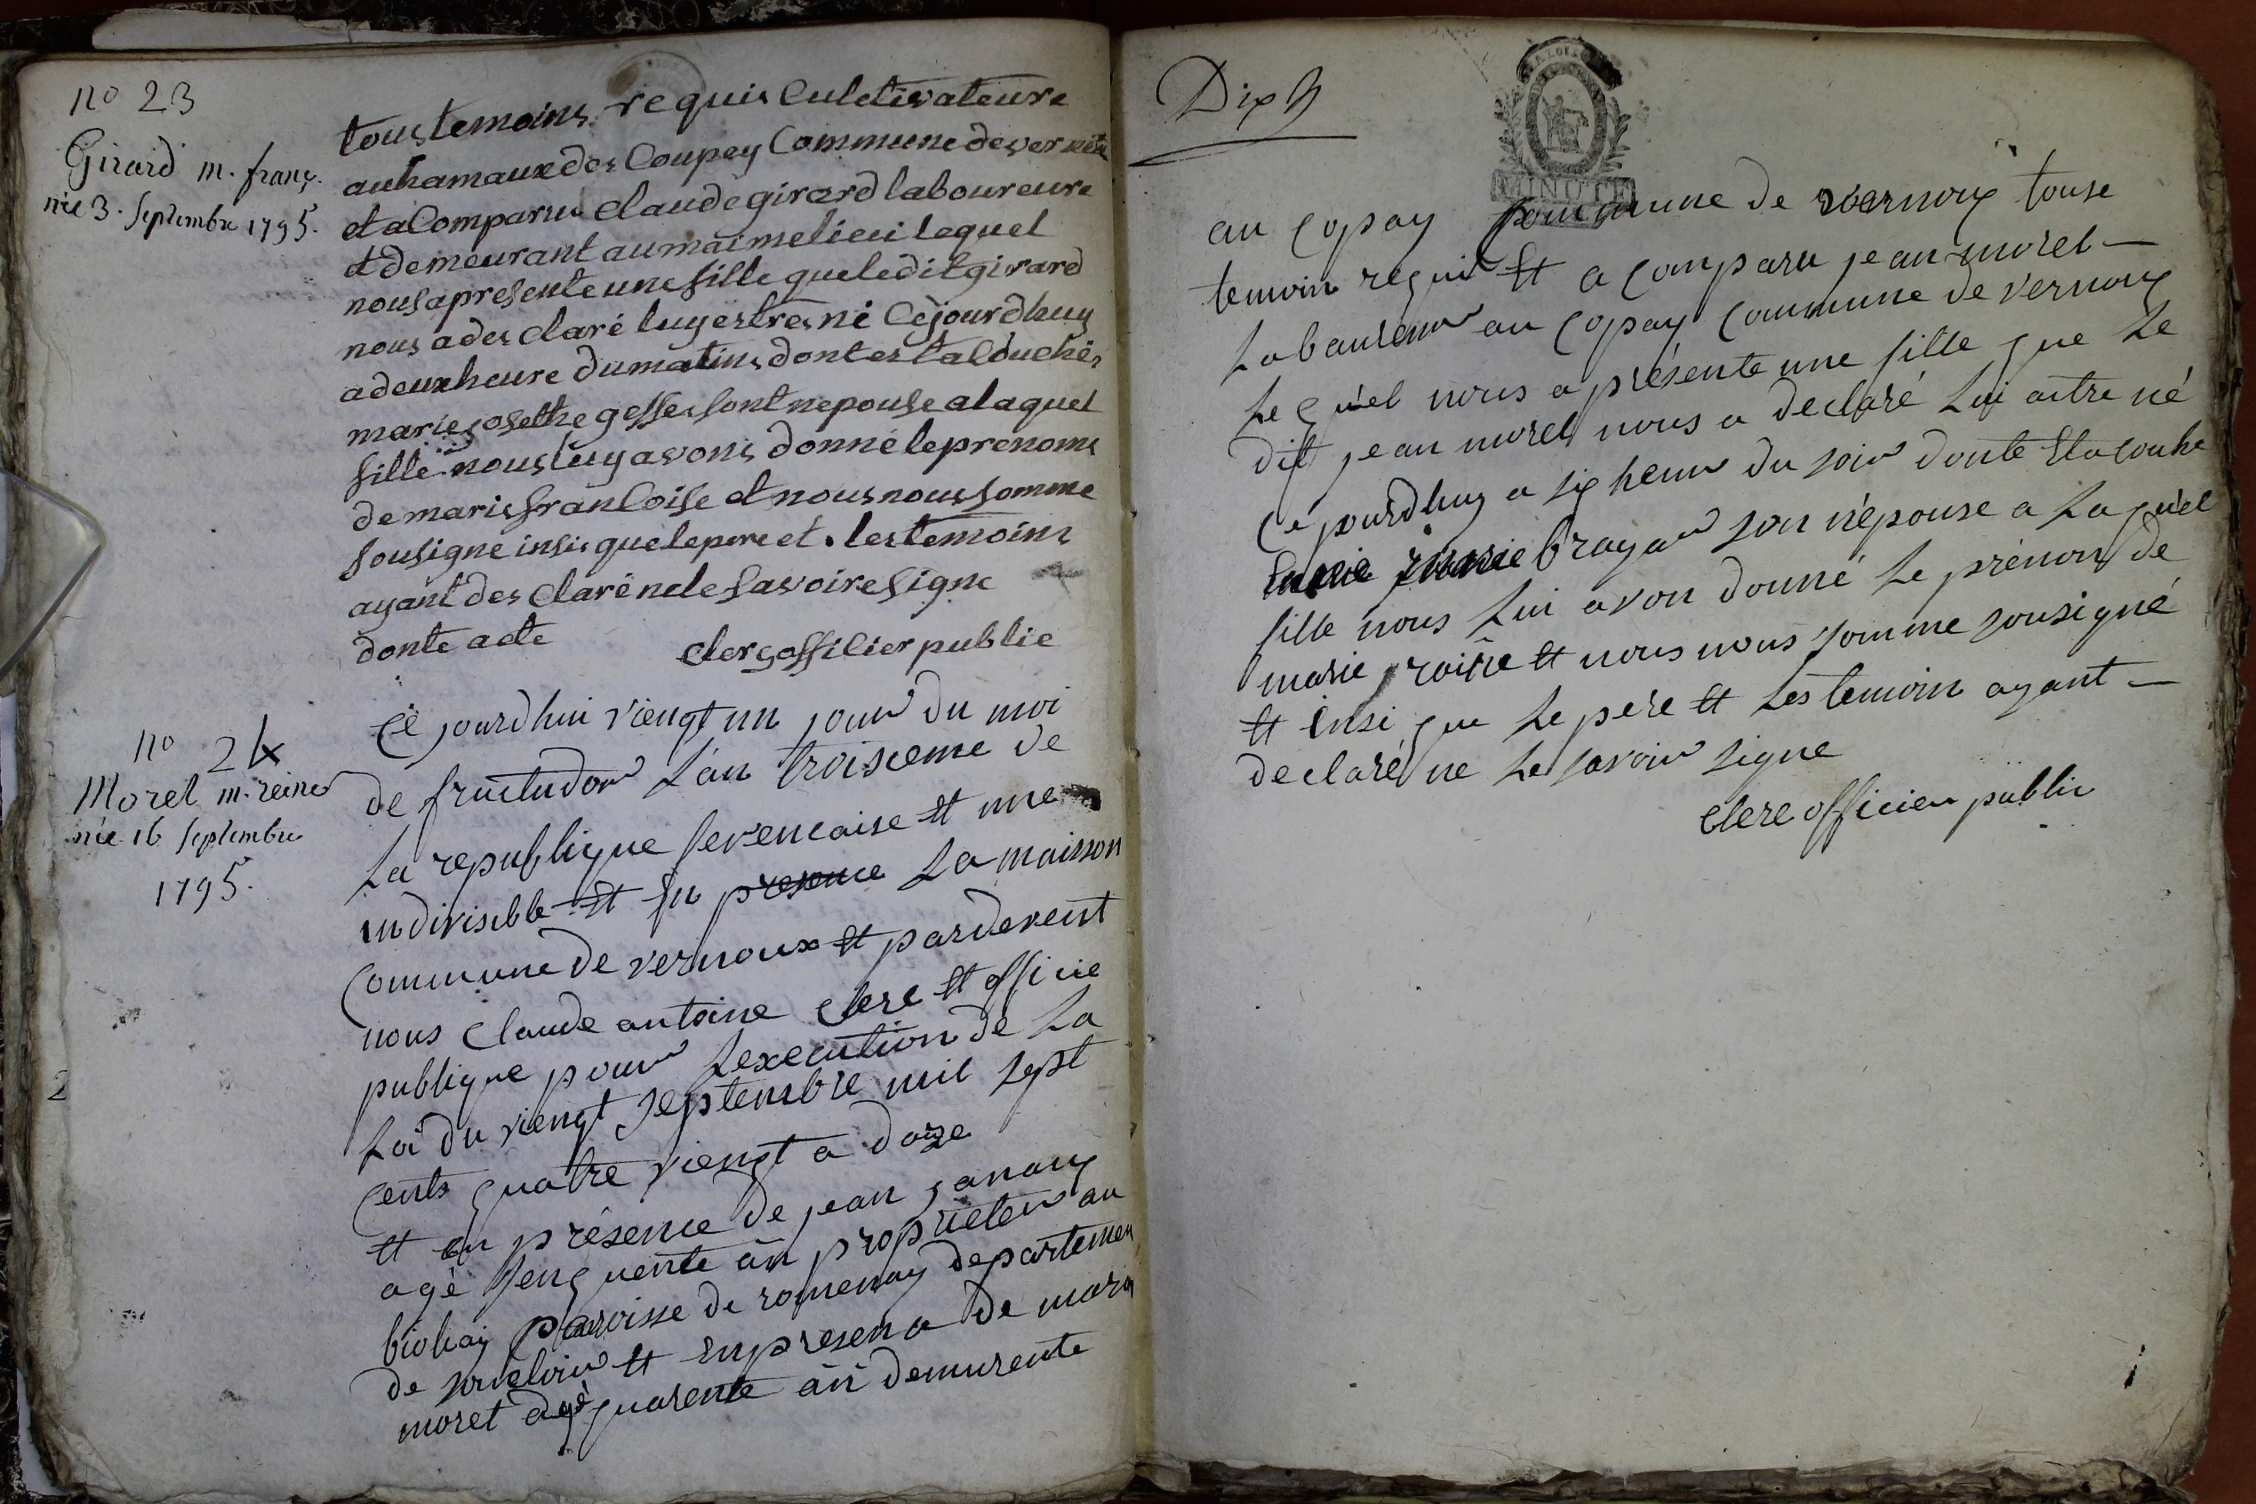 no 23
Girard m. franç.
née 3. Septembre 1795.
tous temoins requis Culetivateure
au hamaux des Coupey Commune de vernoux
et a Comparu Claude girard laboureure
et demeurant au maime lieu lequel
nous a presente une fille que ledit girard
nous a des claré luy estres né Cejourdhuy
a deux heure du matins dont est a louchés
marie josethe gesses sont nepouse a laquel
fille nous luy avons donné le prenoms
de marie francoise et nous nous somme
sousigne insis que le pere et les temoins
ayant des claré ne le savoire signe
donte acte
Clerg offilier publie
no 24
Moret m. reine
née 16 Septembre
1795.
Ce jourdhui viengt un jour du moi
de fructudor Lan troisceme de
La republique ferencaise et une
indivisible et En presence La maison
Commune de vernoux et pardevent
nous Claude antoine Clere et officie
publique pour Lexecution de La
Loi du viengt septembre mil sept
Cents quatre viengt a doze
et en présence de jean ganaux
agé senquente an proprieter au
biolay paroisse de romenay departemen
de soneloir et En presena de
moret agé quarente an demurente
Dix 9
MINUTE
au Copay Commune de vernoux touse
temoin requi et a Comparu jean moret
Laboureur au Copay Commune de vernoux
Le quel nous a présente une fille que Le
dit jean moret nous a declaré Lui aitre né
Ce jourdhuy a six heur du soir donte Eta couhe
marie brayar son népouse a La quel
fille nous Lui avon donné Le prénon de
marie roine et nous nous somme sousigné
et Ensi que Le pere et Les temoin ayant
declaré ne Le savoir signe
Clere officier public